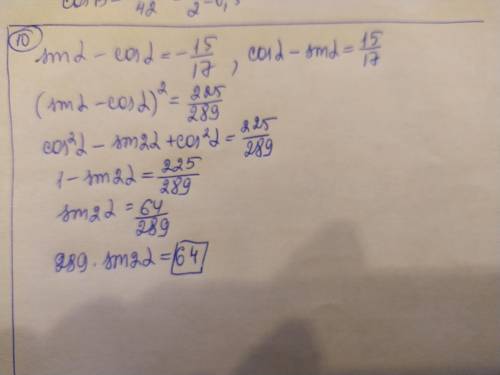 10
sin α - cos α = -15/17, cos α - sin α = 15/17
(sin α - cos α)² = 225/289
cos²α - sin 2α + cos²α = 225/289
1 - sin 2α = 225/289
sin 2α = 64/289
289 · sin 2α = 64